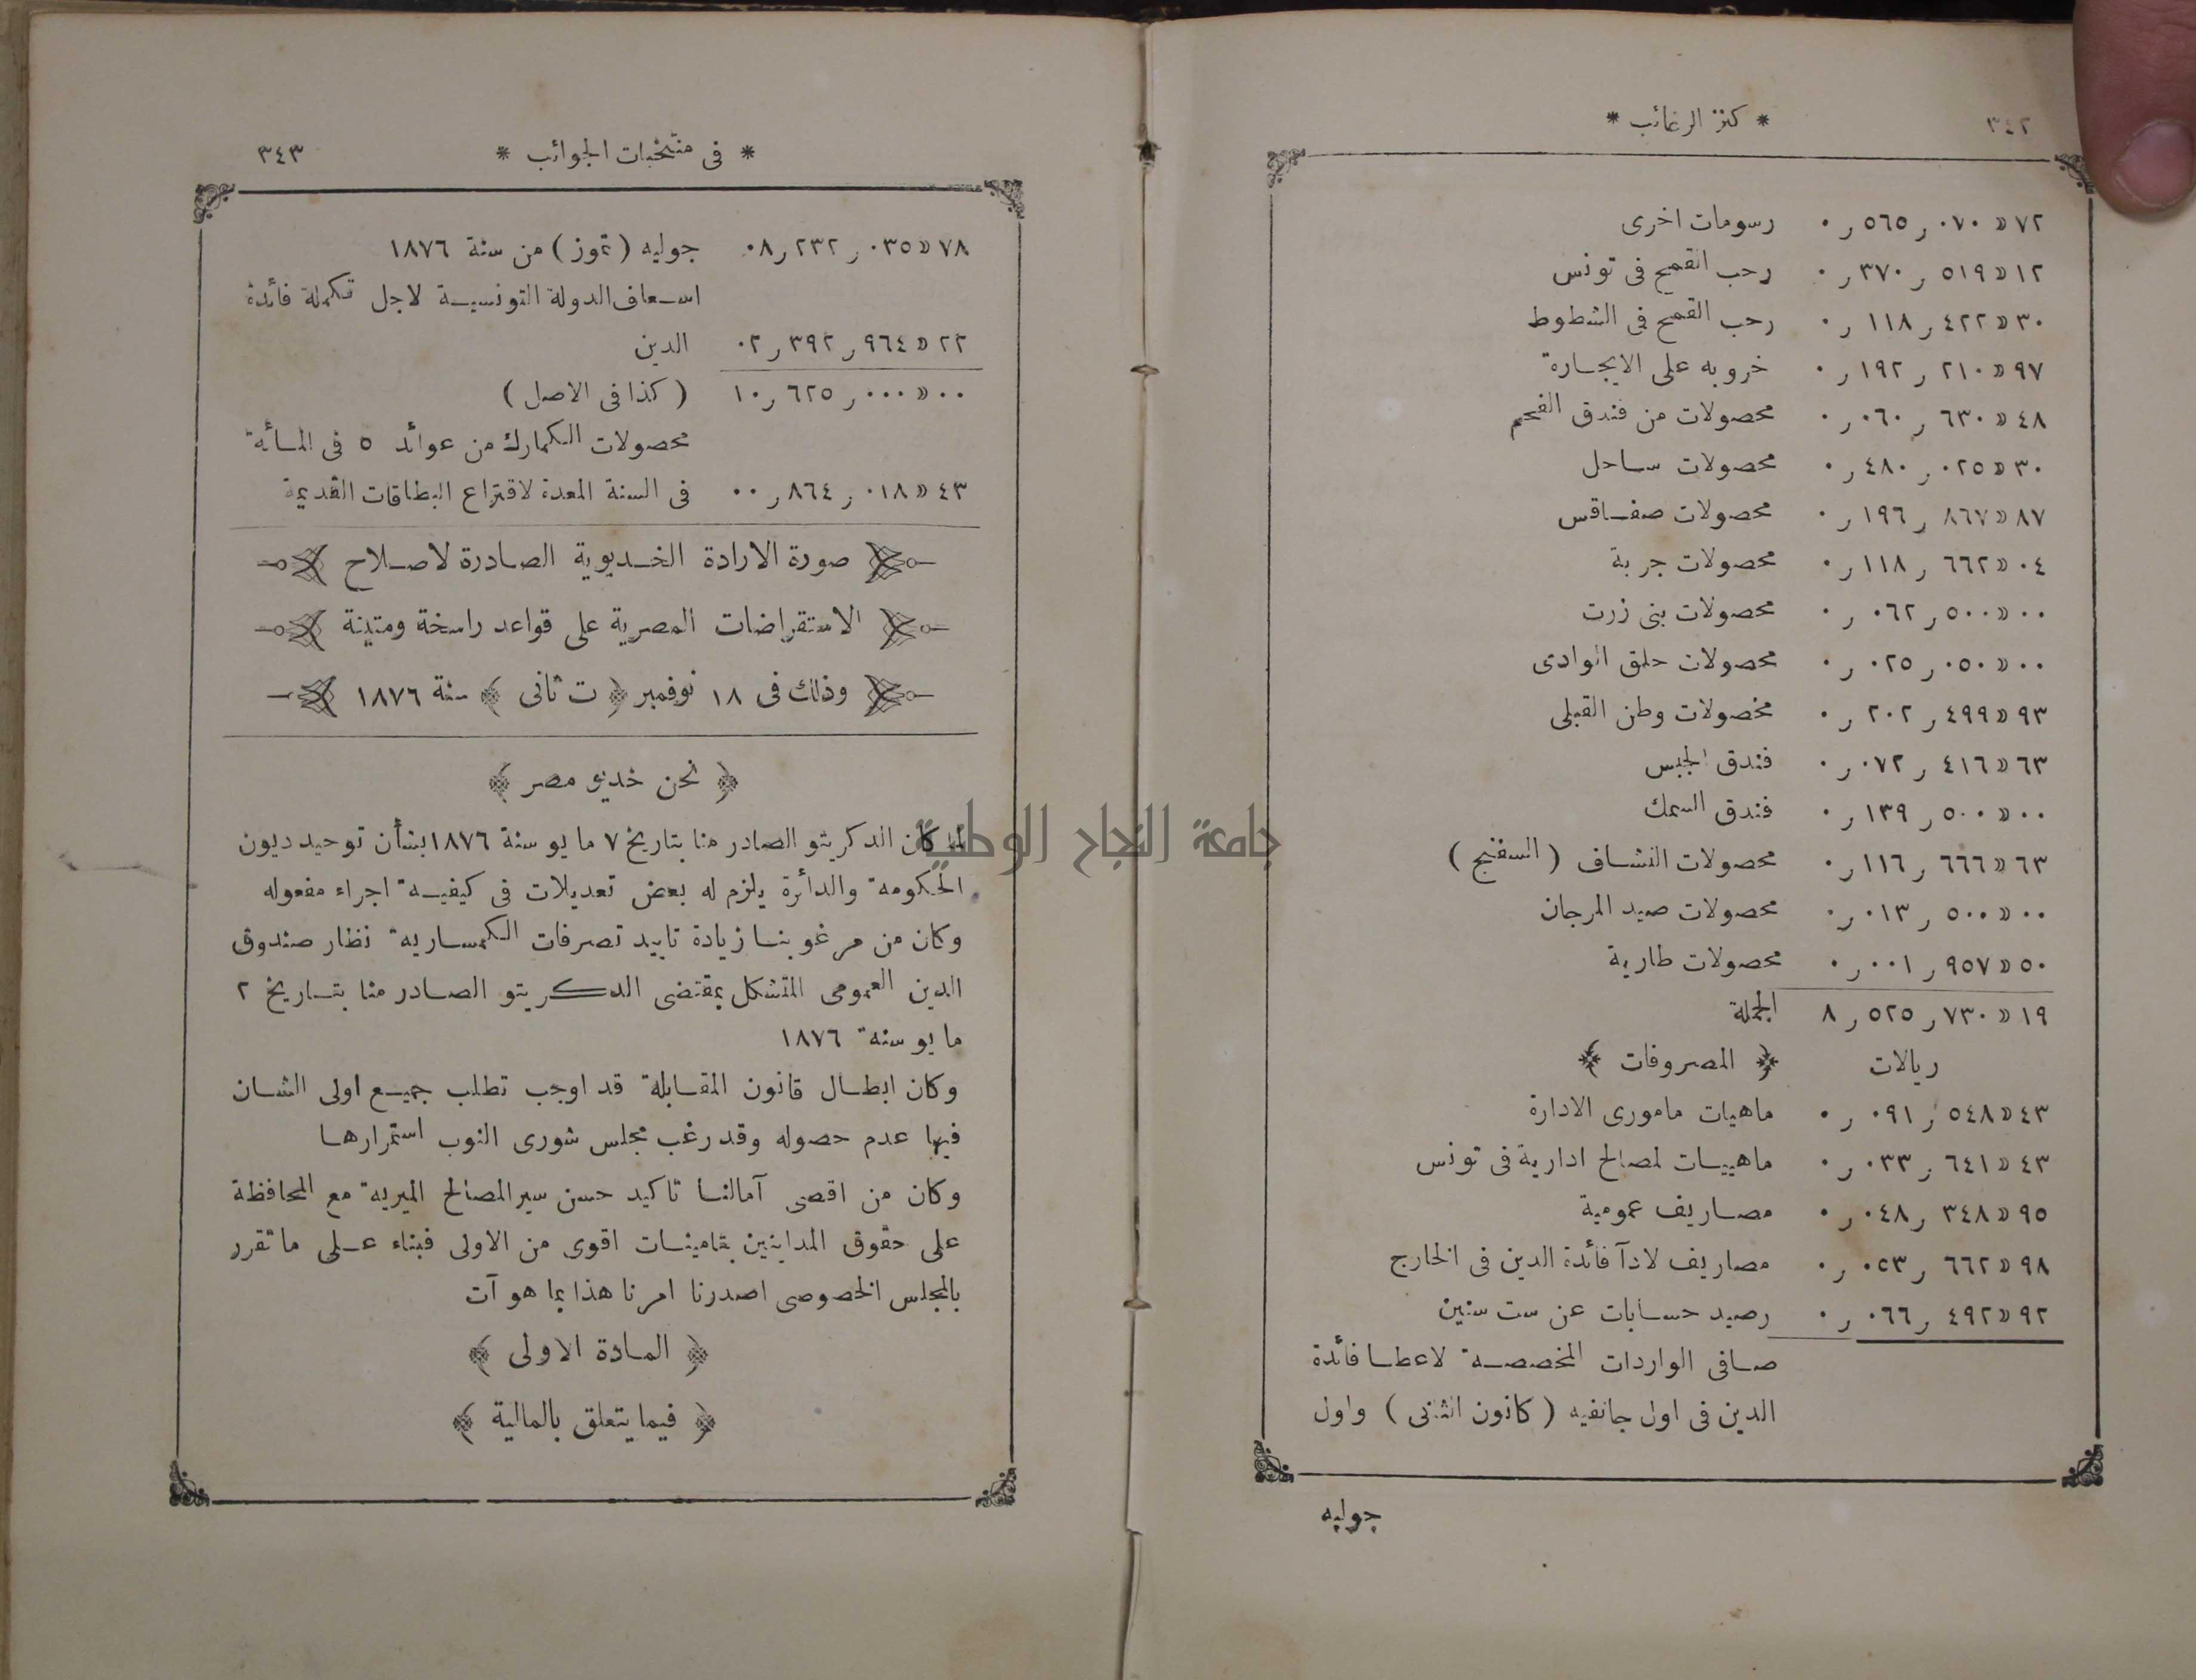 ٣٤٢
* كنز الرغائب *
٧٢ » ٠٧٠ ر ٥٦٥ ر ٠ رسومات اخرى
١٢ » ٥١٩ ر ٣٧٠ ر ٠ رحب القمح فى تونس
٣٠ » ٤٢٢ ر ١١٨ ر ٠ رحب القمح فى الشطوط
٩٧ » ٢١٠ ر ١٩٢ ر ٠ خروبه على الايجارة
٤٨ » ٦٣٠ ر ٠٦٠ ر ٠ محصولات من فندق الفحم
٣٠ » ٠٢٥ ر ٤٨٠ ر ٠ محصولات ساحل
٨٧ » ٨٦٧ ر ١٩٦ ر ٠ محصولات صفاقس
٠٤ » ٦٦٢ ر ١١٨ ر ٠ محصولات جربة
٠٠ » ٥٠٠ ر ٠٦٢ ر ٠ محصولات بنى زرت
٠٠ » ٠٥٠ ر ٠٢٥ ر ٠ محصولات حلق الوادى
٩٣ » ٤٩٩ ر ٢٠٢ ر ٠ محصولات وطن القبلى
٦٣ » ٤١٦ ر ٠٧٢ ر ٠ فندق الجبس
٠٠ » ٥٠٠ ر ١٣٩ ر ٠ فندق السمك
٦٣ » ٦٦٦ ر ١١٦ ر ٠ محصولات النشاف ( السفنج )
٠٠ » ٥٠٠ ر ٠١٣ ر ٠ محصولات صيد المرجان
٥٠ » ٩٥٧ ر ٠٠١ ر ٠ محصولات طارية
١٩ » ٧٣٠ ر ٥٢٥ ر ٨ الجملة
ريالات ﴿ المصروفات ﴾
٤٣ » ٥٤٨ ر ٠٩١ ر ٠ ماهيات مامورى الادارة
٤٣ » ٦٤١ ر ٠٣٣ ر ٠ ماهييات لمصالح ادارية فى تونس
٩٥ » ٣٤٨ ر ٠٤٨ ر ٠ مصاريف عمومية
٩٨ » ٦٦٢ ر ٠٥٣ ر ٠ مصاريف لادآ فائدة الدين فى الخارج
٩٢ » ٤٩٢ ر ٠٦٦ ر ٠ رصيد حسابات عن ست سنين
صافى الواردات المخصصة لاعطا فائدة
الدين فى اول جانفيه ( كانون الثانى ) واول
جوليه
* فى منتخبات الجوائب *
٣٤٣
٧٨ » ٠٣٥ ر ٢٣٢ ر ٠٨ جوليه ( تموز ) من سنة ١٨٧٦
اسعاف الدولة التونسية لاجل تكملة فائدة
٢٢ » ٩٦٤ ر ٣٩٢ ر ٠٢ الدين
٠٠ » ٠٠٠ ر ٦٢٥ ر ١٠ ( كذا فى الاصل )
محصولات الكمارك من عوائد ٥ فى المأة
٤٣ » ٠١٨ ر ٨٦٤ ر ٠٠ فى السنة المعدة لاقتراع البطاقات القديمة
صورة الارادة الخديوية الصادرة لاصلاح
الاستقراضات المصرية على قواعد راسخة ومتينة
وذلك فى ١٨ نوفمبر ﴿ ت ثانى ﴾ سنة ١٨٧٦
﴿ نحن خديو مصر ﴾
لما كان الدكريتو الصادر منا بتاريخ ٧ مايو سنة ١٨٧٦ بشأن توحيد ديون
الحكومة والدائرة يلزم له بعض تعديلات فى كيفية اجراء مفعوله
وكان من مرغوبنا زيادة تاييد تصرفات الكمسارية نظار صندوق
الدين العمومى المتشكل بمقتضى الدكريتو الصادر منا بتاريخ ٢
مايو سنة ١٨٧٦
وكان ابطال قانون المقابلة قد اوجب تطلب جميع اولى الشان
فيها عدم حصوله وقد رغب مجلس شورى النوب استمرارها
وكان من اقصى آمالنا تاكيد حسن سير المصالح الميرية مع المحافظة
على حقوق المداينين بتامينات اقوى من الاولى فبناء على ما تقرر
بالمجلس الخصوصى اصدرنا امرنا هذا بما هو آت
﴿ المادة الاولى ﴾
﴿ فيما يتعلق بالمالية ﴾
جامعة النجاح الوطنية